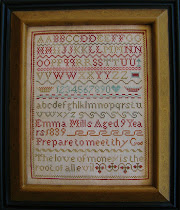 AABBCCDDEEFFGG
HHIIJJKKLLMMNN
OOPPQQRRSSTTUU
VVWWXXYYZZ
1234567890
abcdefghiklmnopqrstu
vwxyz
Emma Mills Aged 9 Years
1839
Prepare to meet thy God
The love of money is the
root of all evil